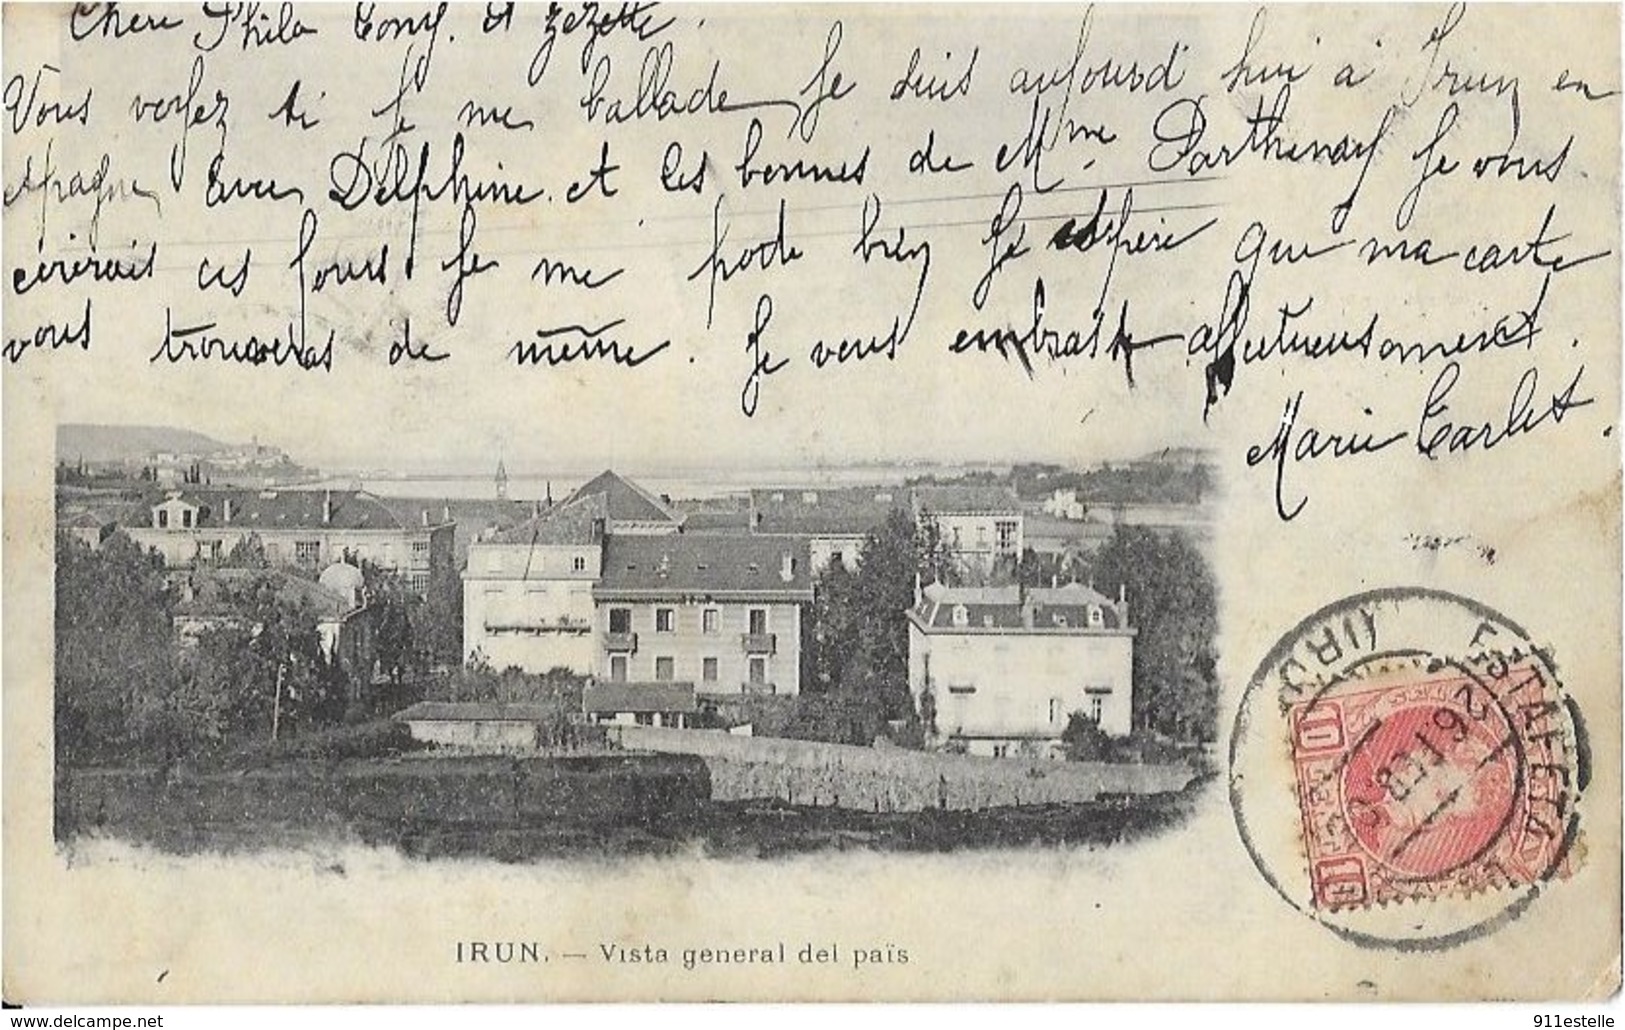 Chere Phila Tony. et Zezette.
Vous voyez si je me ballade je suis aujourd'hui à Irun en
espagne avec Delphine. et les bonnes de Mme. Parthenay je vous
écrirais ces jours je me porte bien je espère que ma carte
vous trouveras de même. je vous embrasse affectueusement.
Marie Carlet.
IRUN. — Vista general del païs
ESTAFETA
(IRUN)
26 FEB
10
10
www.delcampe.net
911estelle